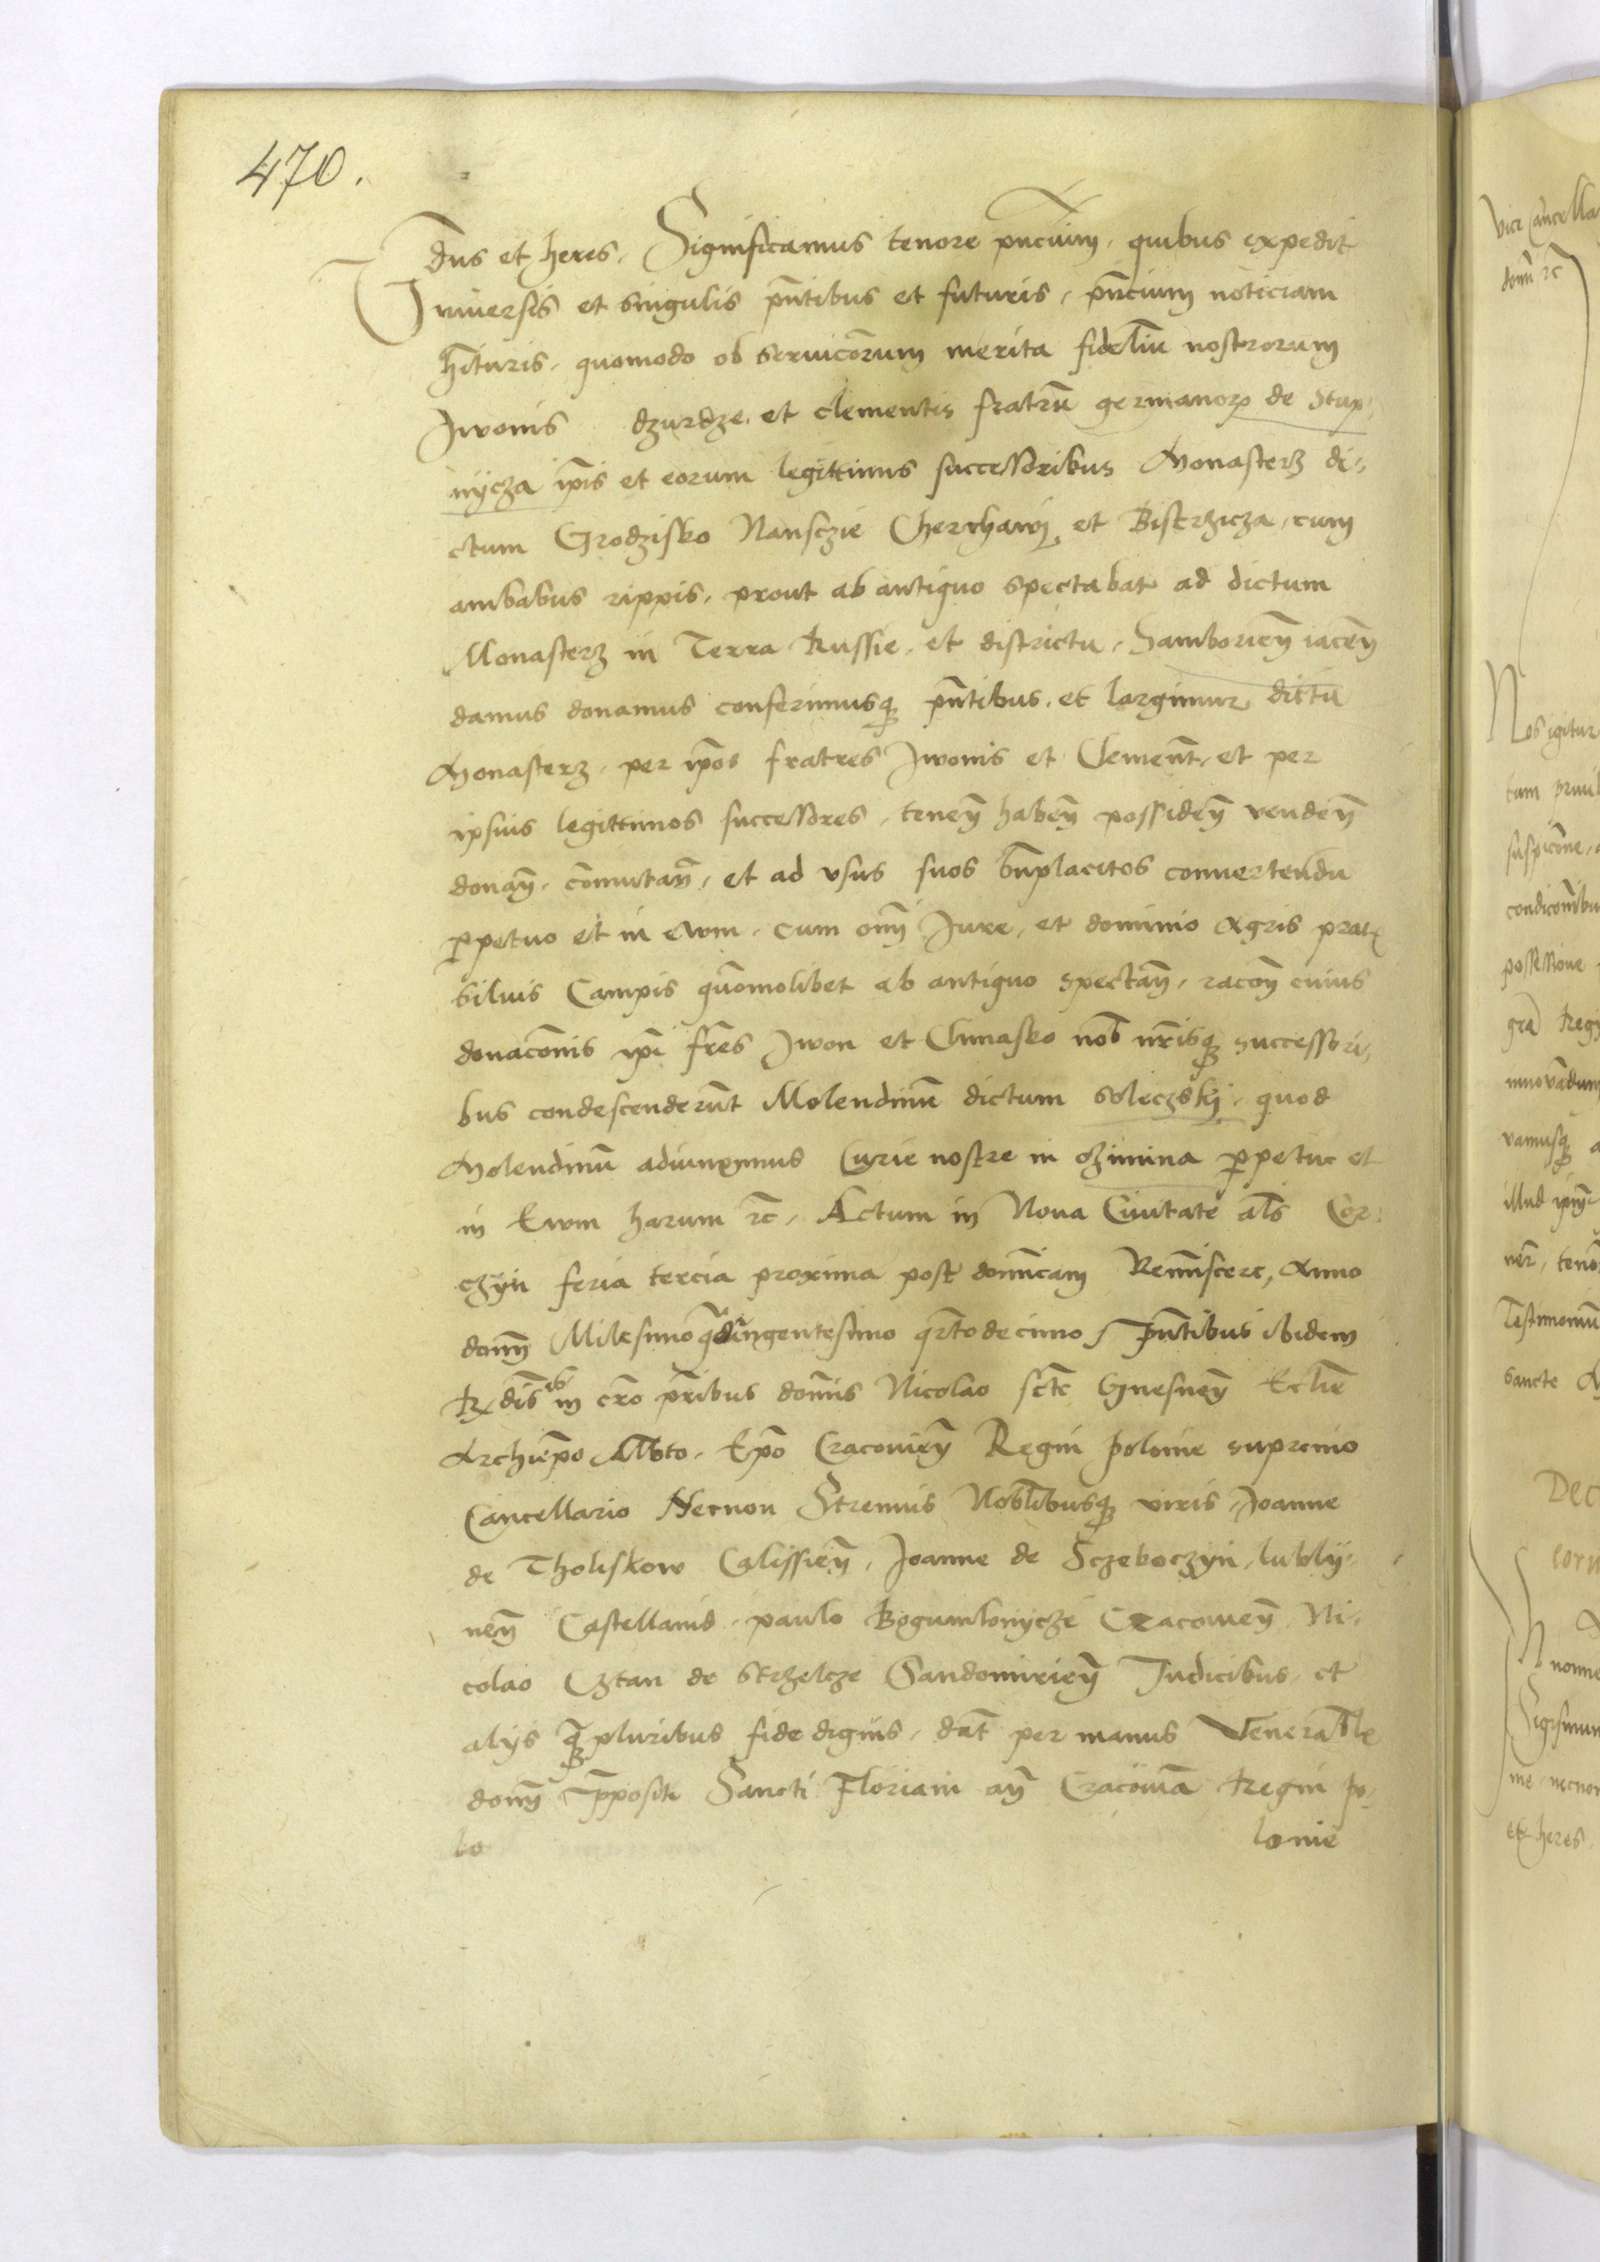 470.
dn̄s et heres. Significamus tenore pn̄cium, quibus expedit
Vniuersis et singulis pn̄tibus et futuris, pn̄cium noticiam
hi̅turis, quomodo ob seruico̅rum merita fideliū nostrorum
Iwonis dzurdze, et clementis fratrū germanoꝝ de Stup-
nycza ip̄is et eorum legittimis successoribus Monasterz di-
ctum Grodzisko Nansczie Cherchawÿ et Bistrzicza, cum
ambabus rippis, prout ab antiquo spectabat ad dictum
Monasterz in Terra Russie, et districtu, Samborien̄ iacen̄
damus donamus conferimusqꝫ pn̄tibus, et largimur dictū
Monasterz, per ip̄os fratres Iwonis et Clemen̄t, et per
ipsius legittimos successores, tenen̄ haben̄ possiden̄ venden̄
donan̄, co̅mutan̄, et ad vsus suos bn̄placitos conuertendū
ꝑpetuo et in ewm, cum om̄i Iure, et dominio Agris prat
siluis Campis quo̅molibet ab antiquo spectan̄, raco̅n cuius
donaco̅nis ip̄i fr̄es Iwon et Chmasko nob̄ nr̄isqꝫ successori-
bus condescenderūt Molendinū dictum soleczskÿ, quod
Molendinū adiunximus Curie nostre in ozimina ꝑpetue et
in Ewm harum ⁊c, Actum in Noua Ciuitate al̄s Cor-
czÿn feria tercia proxima post domīcam Remīscere, Anno
domīni Milesimo quadringentesimo qr̄todecimo, Pn̄tibus ibidem
R̄dis in cr̄o pr̄ibus dom̄is Nicolao sc̄te Gnesnen̄ Eccl̄ie
Archiep̄o Alb̄to, Ep̄o Cracouien̄ Regni Polonie supremo
Cancellario Necnon Strenuis Nobl̄ibusqꝫ viris, Joanne
de Tholiskow Calissien̄, Joanne de Sczeboczÿn, lublÿ-
nen̄ Castellanis, paulo Bogumlonycze Cracouien̄ Ni-
colao Cztan de strzelcze Sandomirien̄ Judicibus, et
alÿs qꝫ pluribus fide dignis, dat̄ per manus Venerabl̄e
dom̄ p̄positi Sancti Floriani an̄ Cracouiā Regni Po-
lo lonie
vice Cancella
domī ⁊c
Nos igitur
tam priuil
suspico̅ne,
condico̅nibu
possessione
gr̄a Regÿ
innouādum
vamusqꝫ
illud
Testimonium
sancte
Dec
corn
nonne
Sigismun
me, necnon
et heres